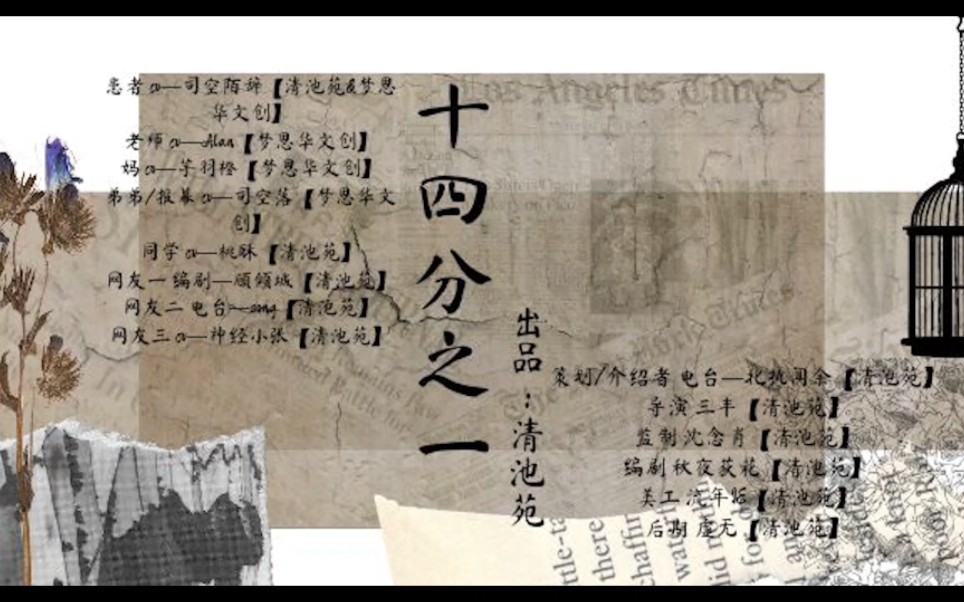 患者cv—司空陌辞【清池苑&梦思
华文创】
老师cv—Alan【梦思华文创】
妈cv—芋羽橙【梦思华文创】
弟弟/报幕cv—司空落【梦思华文
创】
同学cv—桃酥【清池苑】
网友一 编剧—顾倾城【清池苑】
网友二 电台—song【清池苑】
网友三cv—神经小张【清池苑】
十四分之一
出品：清池苑
策划/介绍者 电台—北桃闻余【清池苑】
导演 三丰【清池苑】
监制 沈念肖【清池苑】
编剧 秋夜荻花【清池苑】
美工 流年【清池苑】
后期 虚无【清池苑】
Los Angeles Times
The New York Times
ttle-ta
there
chaffin